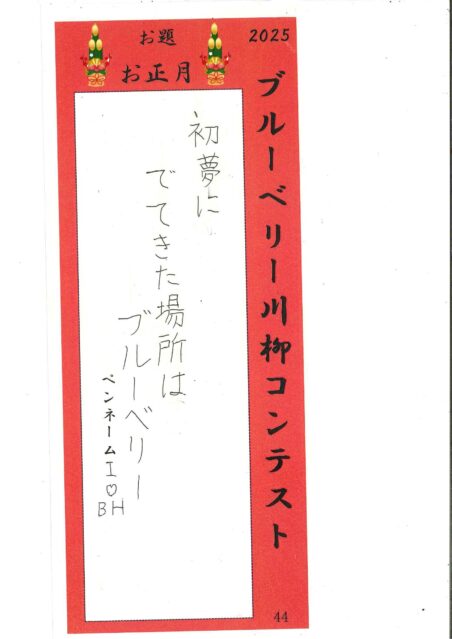 2025
ブルーベリー川柳コンテスト
お題
お正月
初夢に
でてきた場所は
ブルーベリー
ペンネーム I♡
BH
44